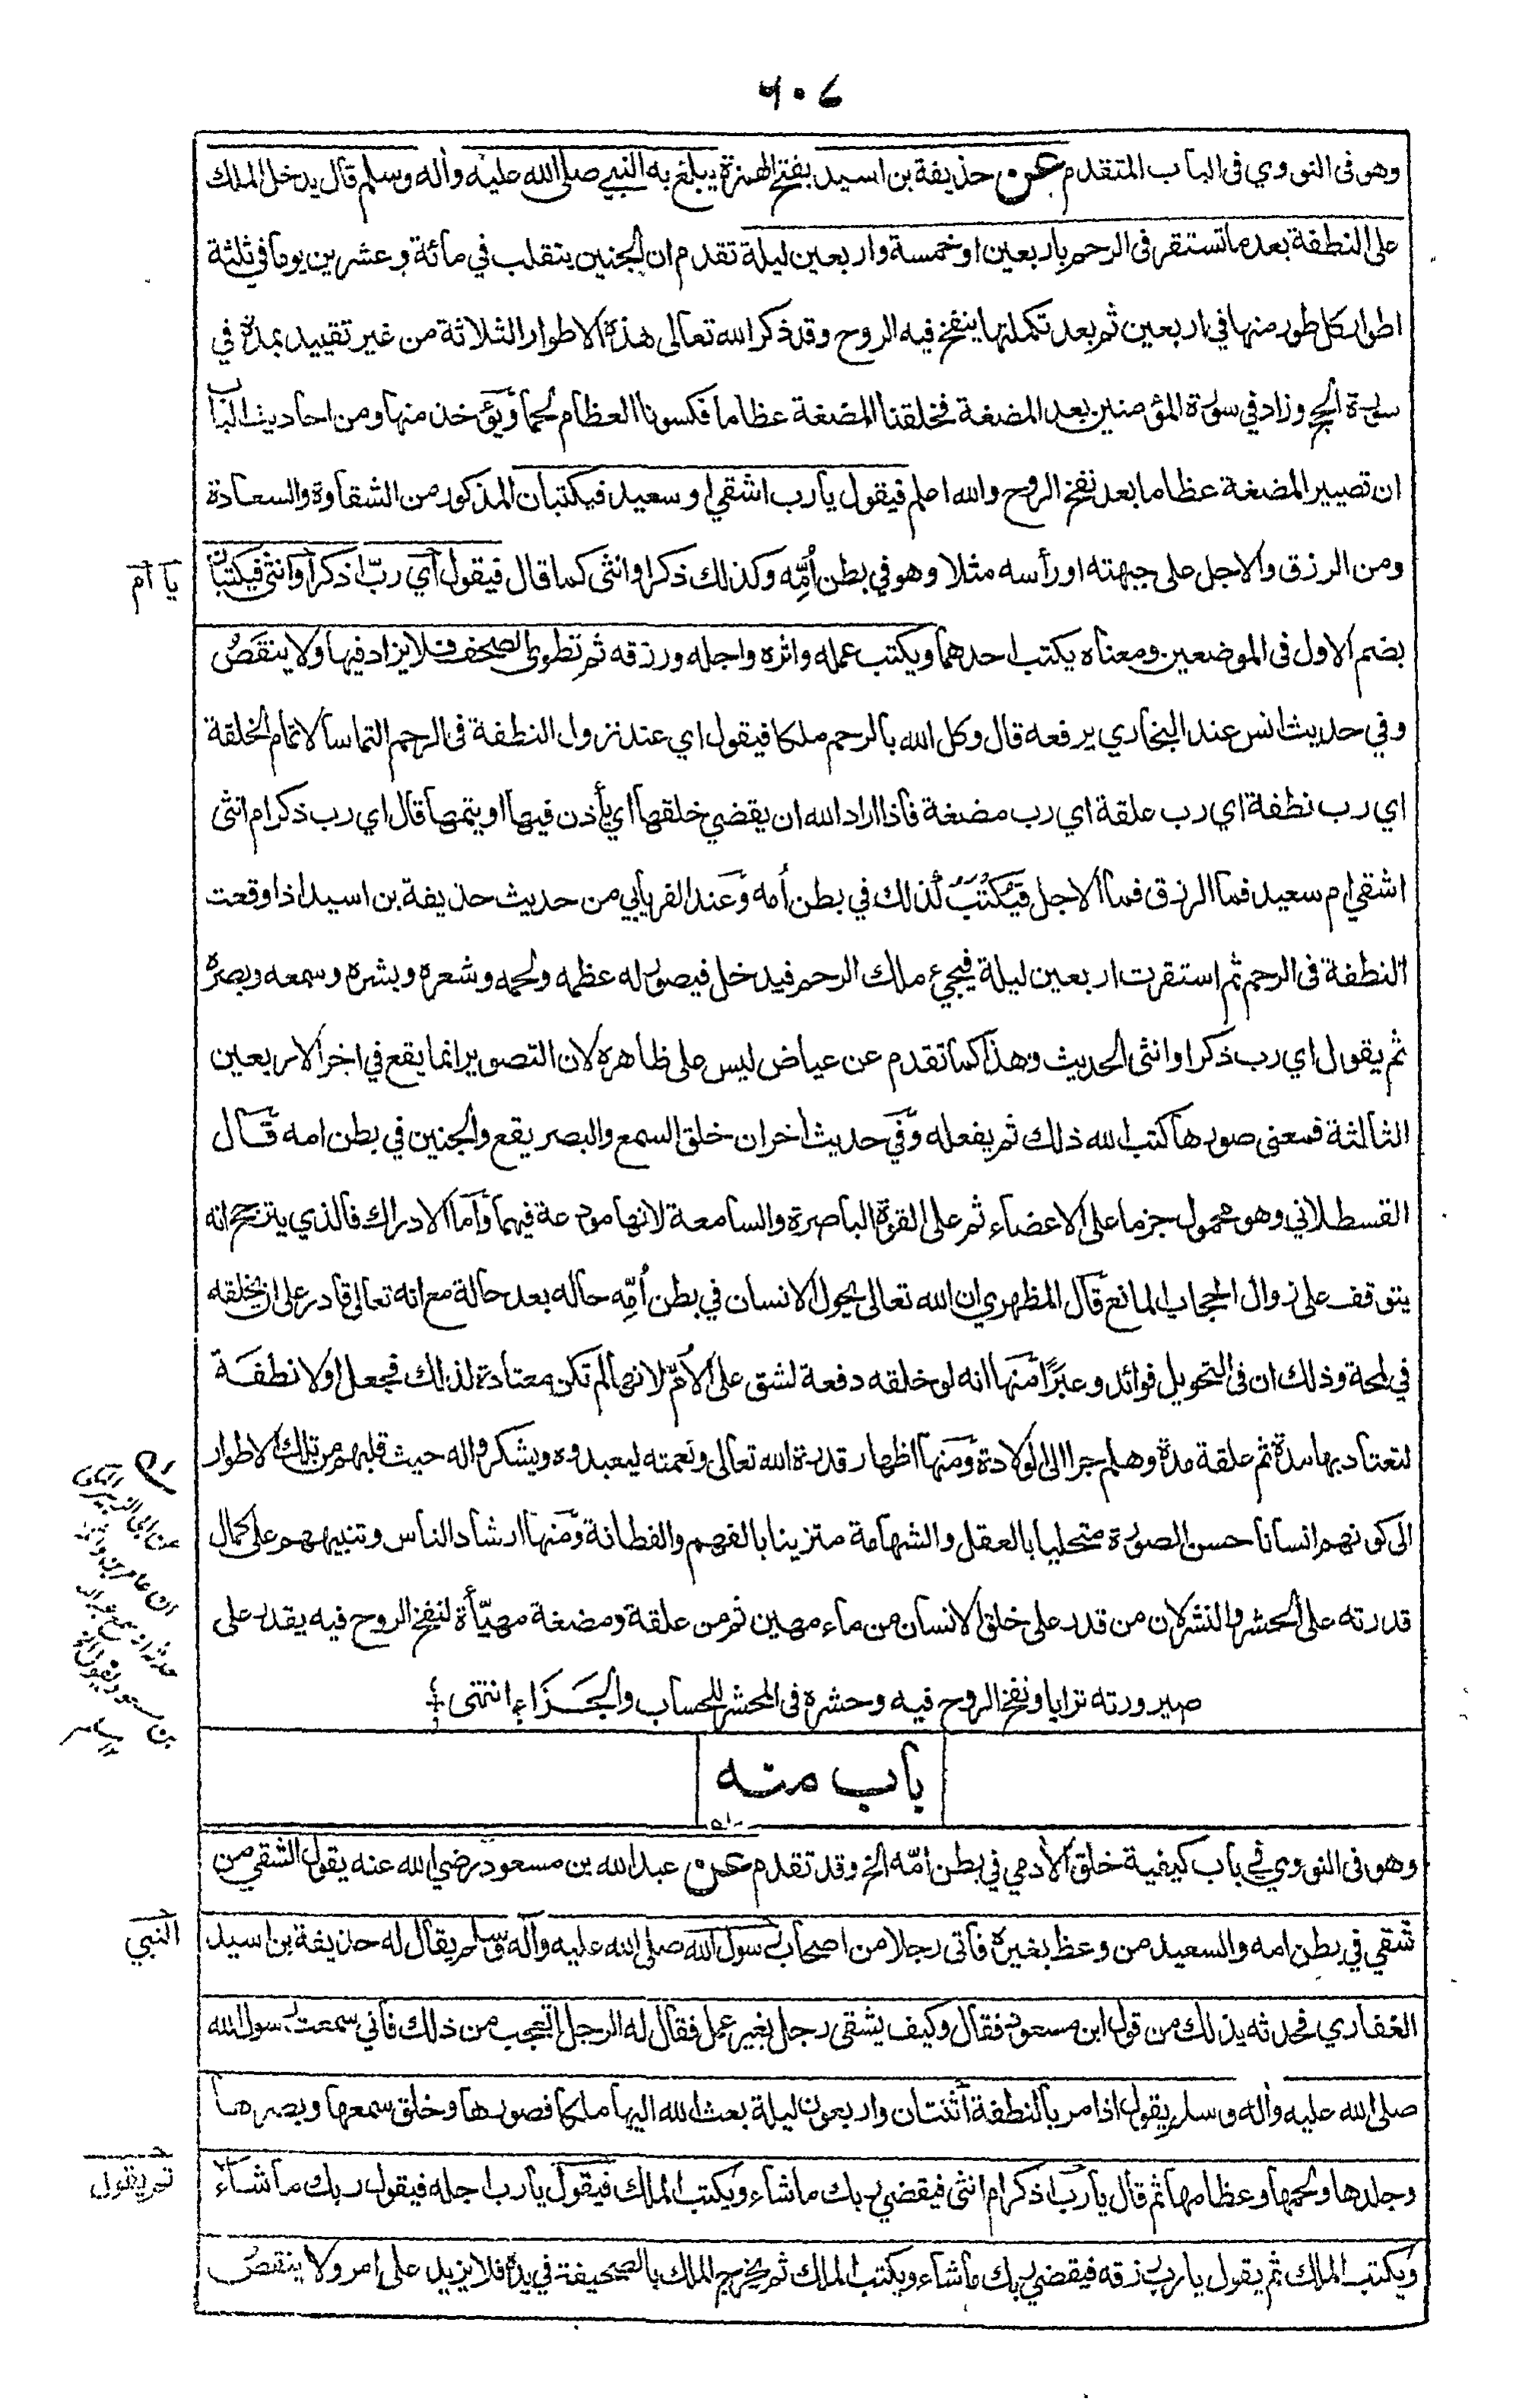 ٦٠٤
وهو فى النووي فى الباب المتقدم عن حذيفة بن اسيد بفتح الهمزة يبلغ به النبي صلى الله عليه وأله وسلم قال يدخل الملك
على النطفة بعد ما تستقر فى الرحم باربعين او خمسة واربعين ليلة تقدم ان الجنين يتقلب في مائة وعشرين يوما في ثلثة
اطوار كل طور منها في اربعين ثم بعد تكملتها ينفخ فيه الروح وقد ذكر الله تعالى هذه الاطوار الثلاثة من غير تقييد بمدة في
سورة الحج وزاد في سورة المؤمنين بعد المضغة فخلقنا المضغة عظاما فكسونا العظام لحما ويؤخذ منها ومن احاديث الباب
ان تصيير المضغة عظاما بعد نفخ الروح والله اعلم فيقول يا رب اشقي او سعيد فيكتبان المذكور من الشقاوة والسعادة
ومن الرزق والاجل على جبهته او رأسه مثلا وهو في بطن أُمِّه وكذلك ذكرا وانثى كما قال فيقول أي ربّ اذكر أو انثى فيكتبان
يا أم
بضم الاول فى الموضعين ومعناه يكتب احدهما ويكتب عمله واثره واجله ورزقه ثم تطوى الصحف فلا يزاد فيها ولا ينقصُ
وفي حديث انس عند البخاري يرفعه قال وكل الله بالرحم ملكا فيقول اي عند نزول النطفة فى الرحم التماسا لاتمام الخلقة
اي رب نطفة اي رب علقة اي رب مضغة فاذا اراد الله ان يقضي خلقها اي يأذن فيها او يتمها قال اي رب ذكر ام انثى
اشقي ام سعيد فما الرزق فما الاجل فَيُكتَبُ كذلك في بطن أمه وعند الفريابي من حديث حذيفة بن اسيد اذا وقعت
النطفة فى الرحم ثم استقرت اربعين ليلة فيجيء ملك الرحم فيدخل فيصور له عظمه ولحمه وشعره وبشره وسمعه وبصره
ثم يقول اي رب ذكر او انثى الحديث وهذا كما تقدم عن عياض ليس على ظاهره لان التصوير انما يقع في اخر الاربعين
الثالثة فمعنى صورها كتب الله ذلك ثم يفعله وفي حديث اخر ان خلق السمع والبصر يقع والجنين في بطن امه قال
القسطلاني وهو محمول جزما على الاعضاء ثم على القوة الباصرة والسامعة لانها مودعة فيهما وأما الادراك فالذي يترجح انه
يتوقف على زوال الحجاب المانع قال المظهري ان الله تعالى يحول الانسان في بطن أُمِّه حاله بعد حالة مع انه تعالى قادر على ان يخلقه
في لمحة وذلك ان فى التحويل فوائد وعبرًا منها انه لو خلقه دفعة لشق على الأمّ لانها لم تكن معتادة لذلك فجعل اولا نطفة
لتعتاد بها مدة ثم علقة مدة وهلم جرا الى الولادة ومنها اظهار قدرة الله تعالى ونعمته ليعبدوه ويشكروا له حيث قلبهم من تلك الاطوار
الى كونهم انسانا حسن الصورة متحليا بالعقل والشهامة متزينا بالفهم والفطانة ومنها ارشاد الناس وتنبيههم على كمال
قدرته على الحشر والنشر لان من قدر على خلق الانسان من ماء مهين ثم من علقة ومضغة مهيّأة لنفخ الروح فيه يقدر على
صيرورته ترابا ونفخ الروح فيه وحشره فى المحشر للحساب والجزاء انتهى
عن ابي الزبير المكي
ان عامر بن واثلة
حدثه انه سمع عبد الله
بن مسعود يقول
باب منه
وهو فى النووي في باب كيفية خلق الأدمي في بطن امّه الخ وقد تقدم عن عبد الله بن مسعود رضي الله عنه يقول الشقي من
شقي في بطن امه والسعيد من وعظ بغيره فأتى رجلا من اصحاب رسول الله صلى الله عليه وأله وسلم يقال له حذيفة بن اسيد
النبي
الغفاري فحدثه بذلك من قول ابن مسعود فقال وكيف يشقى رجل بغير عمل فقال له الرجل اتعجب من ذلك فاني سمعت رسول الله
صلى الله عليه وأله وسلم يقول اذا مر بالنطفة اثنتان واربعون ليلة بعث الله اليها ملكا فصورها وخلق سمعها وبصرها
وجلدها ولحمها وعظامها ثم قال يا رب اذكر ام انثى فيقضي ربك ما شاء ويكتب الملك فيقول يا رب اجله فيقول ربك ما شاء
ثم يقول
ويكتب الملك ثم يقول يا رب رزقه فيقضي ربك ما شاء ويكتب الملك ثم يخرج الملك بالصحيفة في يده فلا يزيد على امر ولا ينقصُ